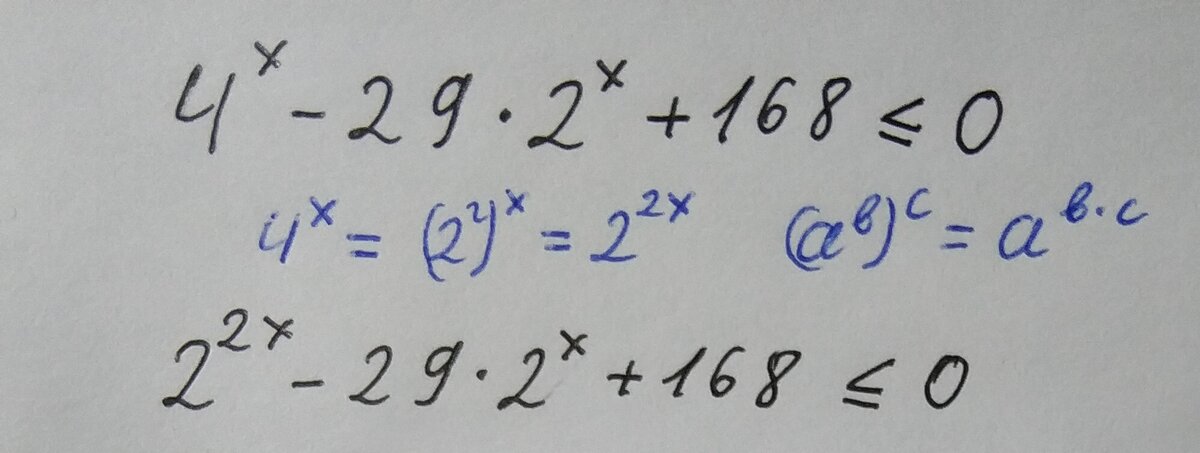 4^x - 29 · 2^x + 168 ≤ 0
4^x = (2^2)^x = 2^{2x} (a^в)^с = a^{в·с}
2^{2x} - 29 · 2^x + 168 ≤ 0